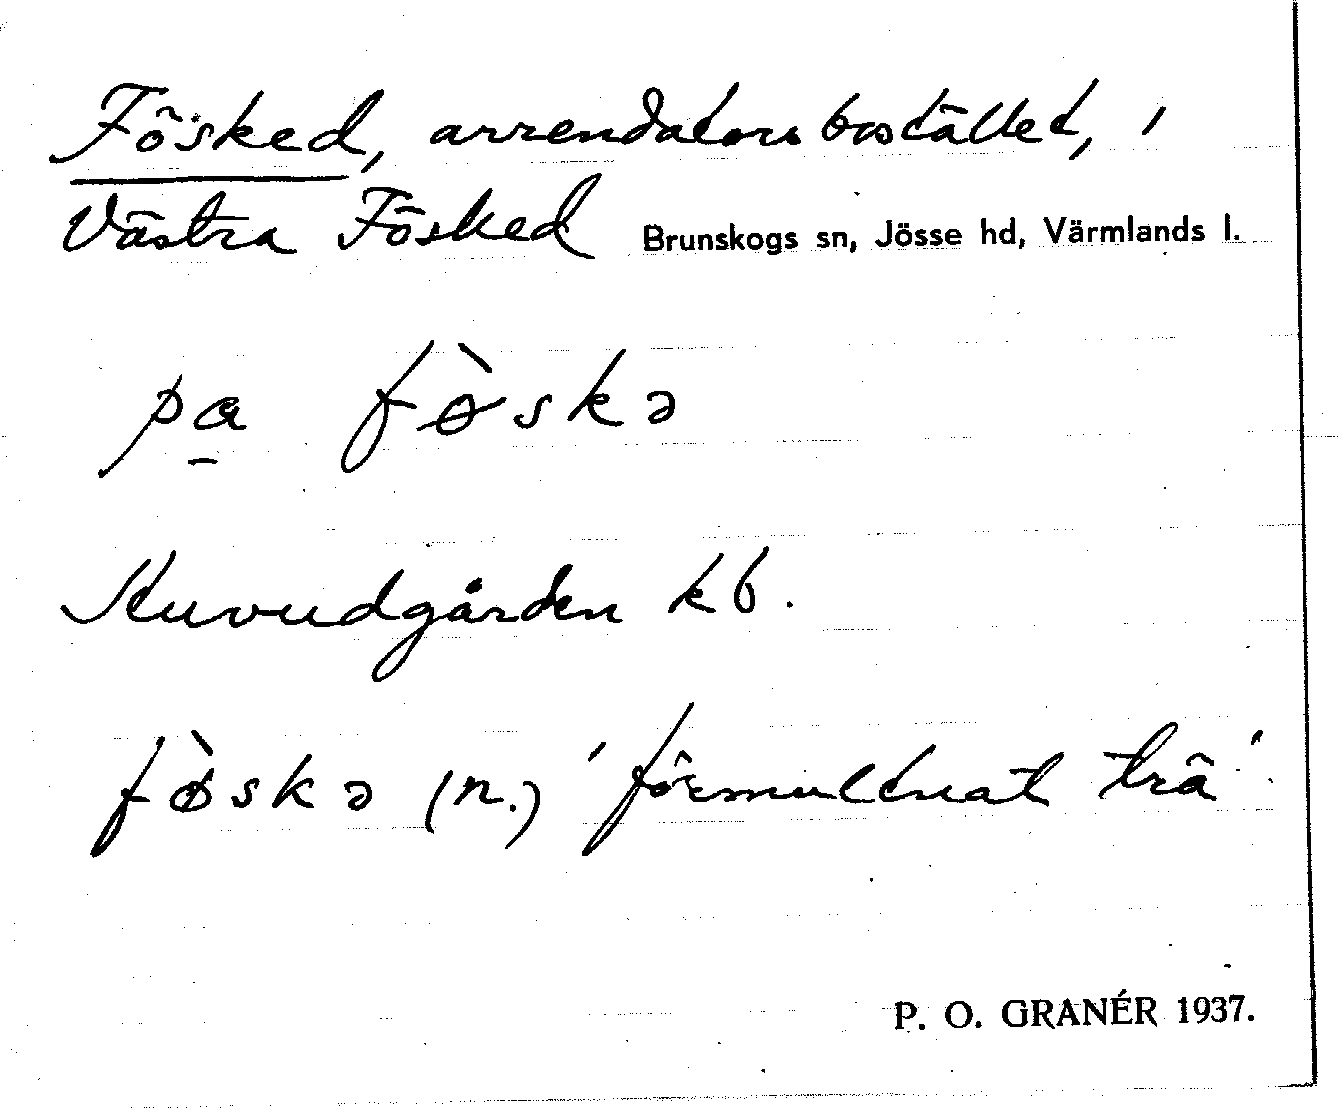 Fösked, arrendatorsbostället, i
Västra Fösked Brunskogs sn, Jösse hd, Värmlands l.
pa fø̀skə
Huvudgården kb.
fø̀skə (n.) 'förmultnat trä'
P. O. GRANÉR 1937.